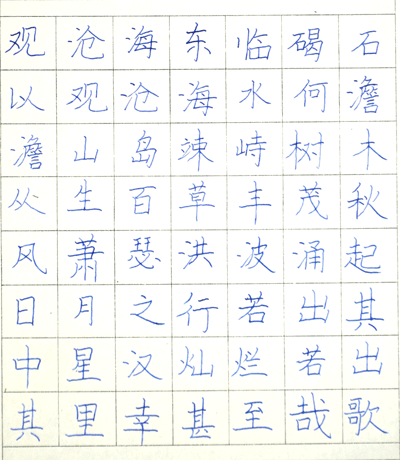 观沧海东临碣石
以观沧海水何澹
澹山岛竦峙树木
从生百草丰茂秋
风萧瑟洪波涌起
日月之行若出其
中星汉灿烂若出
其里幸甚至哉歌